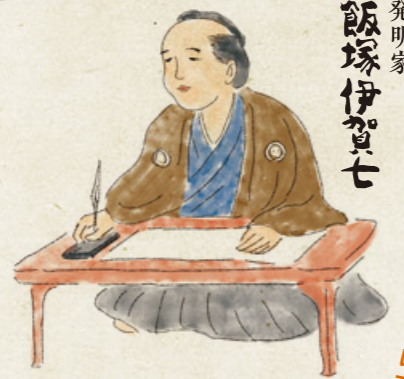 発明家
飯塚伊賀七